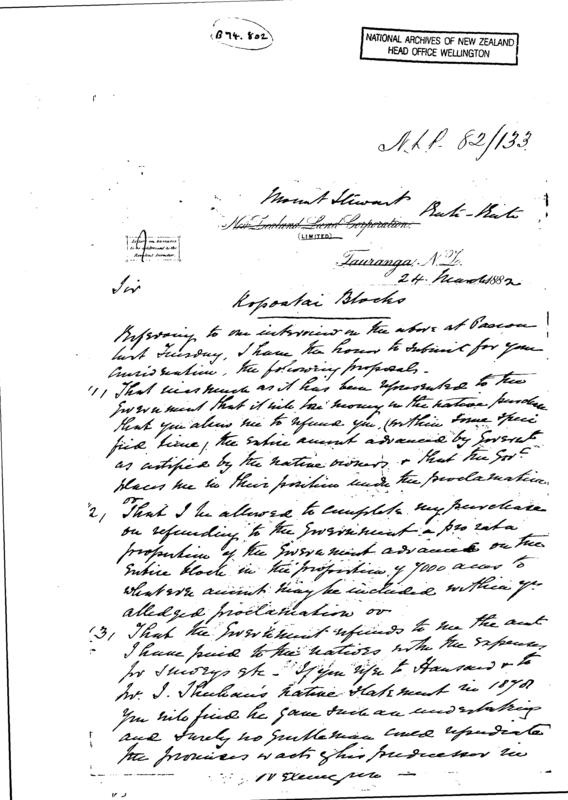 B 74. 802
NATIONAL ARCHIVES OF NEW ZEALAND
HEAD OFFICE WELLINGTON
N.L.P. 82/133
Mount Stewart
New Zealand Land Corporation
(LIMITED)
Tauranga, N.Z.
24 March 1882
Sir
Kopoatai Blocks
Referring to our interview on the above at Paeroa
last Tuesday, I have the honor to submit for your
consideration, the following proposals.
(1) That inasmuch as it has been represented to the
Government that it will lose money in the native purchase
that you allow me to refund you (within some speci
fied time) the entire amount advanced by Governt
as certified by the native owners & that the Govt
places me in their position under the proclamation
or
(2) That I be allowed to complete my purchase
on refunding to the Government a pro rata
proportion of the Government advances on the
entire block in the proportion of 7000 acres to
whatever amount may be included within yr
alledged proclamation or
(3) That the Government refunds to me the amt
I have paid to the natives with the expenses
for surveys etc - If you refer to Hansard & to
Mr. J. Sheehan's native statement in 1878
you will find he gave such an undertaking
and surely no gentleman could repudiate
the promises or acts of his predecessor in